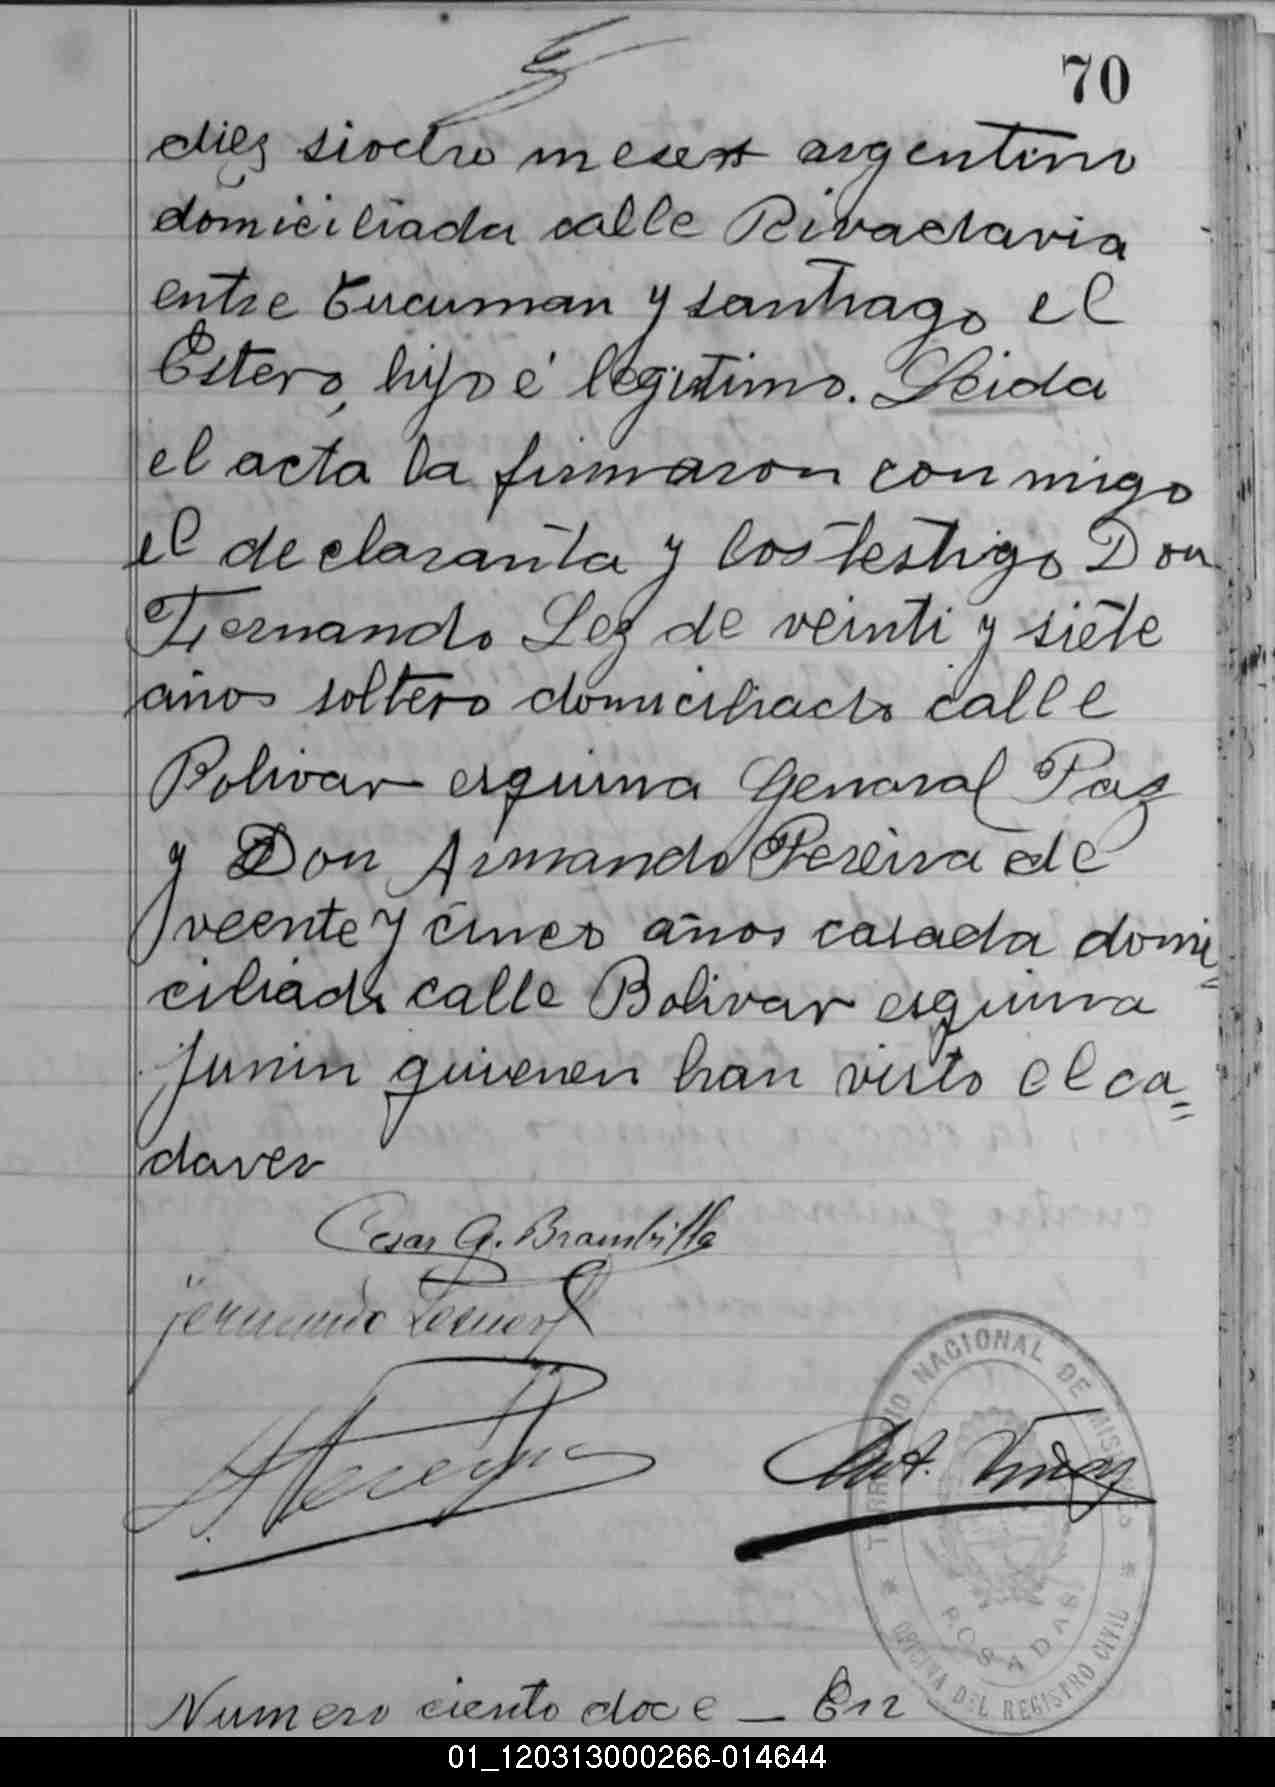 70
diez siocho meses argentino
domiciliada calle Rivadavia
entre Tucuman y santiago el
Estero, hijo é legitimo. Leida
el acta la firmaron con migo
el declaranta y los testigo Don
Fernando Lez de veinti y siete
años soltero domiciliado calle
Bolivar esquina Genaral Paz
y Don Armando Pereira de
veente y cinco años casada domi=
ciliado calle Bolivar esquina
Junin quienen han visto el ca=
daver
Cesar G. Brambilla
Fernando
TERRITORIO NACIONAL DE MISIONES
POSADAS
OFICINA DEL REGISTRO CIVIL
Numero ciento doce _ En
01_120313000266-014644